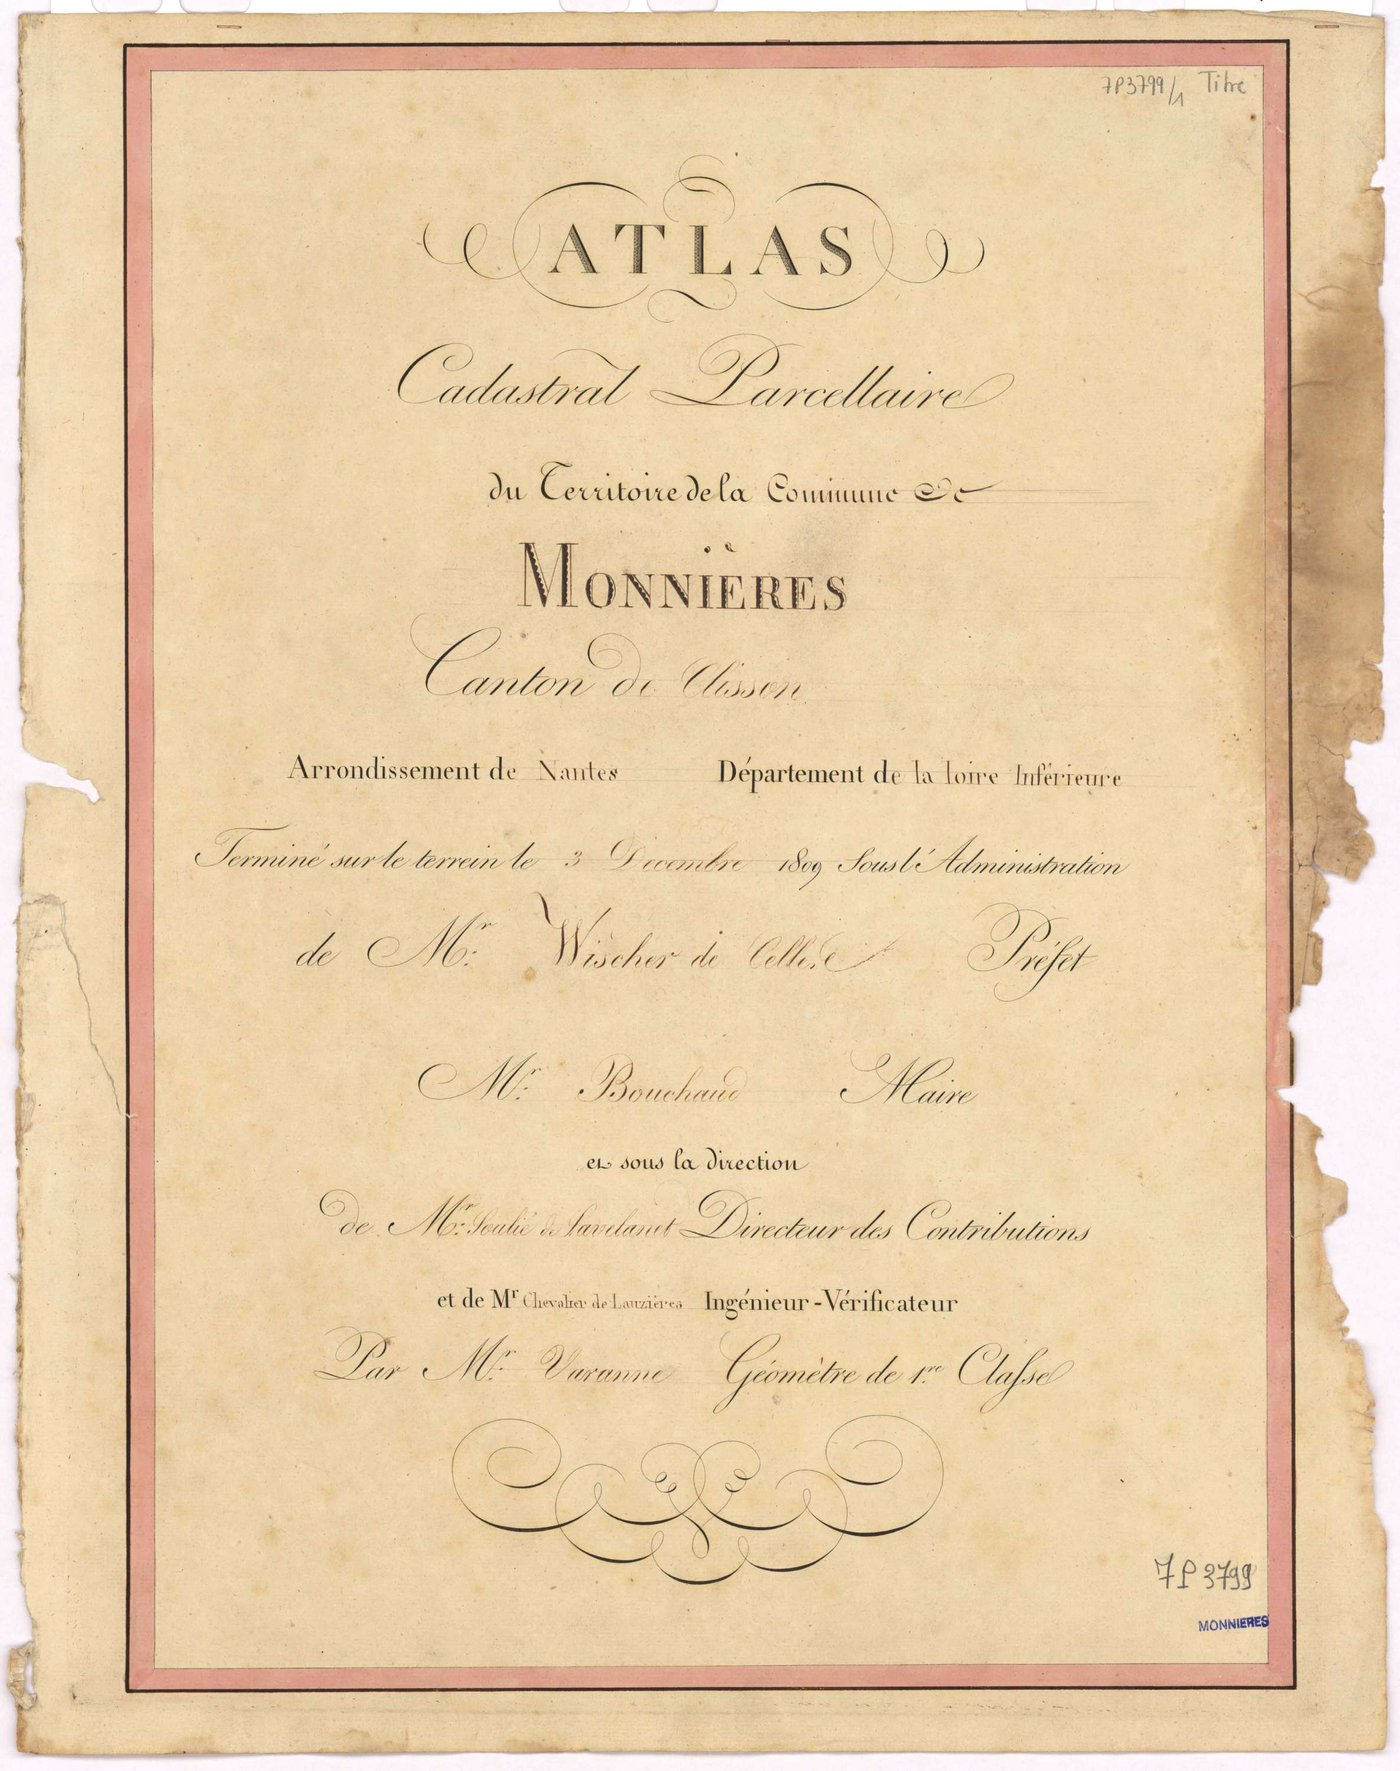 7P3799/1 Titre
ATLAS
Cadastral Parcellaire
du Territoire de la Commune de
MONNIÈRES
Canton de Clisson
Arrondissement de Nantes Département de la Loire Inférieure
Terminé sur le terrein le 3 Decembre 1809 Sous l'Administration
de Mr. Wischer de Celles Préfet
Mr. Bouchaud Maire
et sous la direction
de Mr. Soulié de Lavelanet Directeur des Contributions
et de Mr Chevalier de Lauzières Ingénieur-Vérificateur
Par Mr. Varanne Géomètre de 1.re Classe
7P3799
MONNIERES